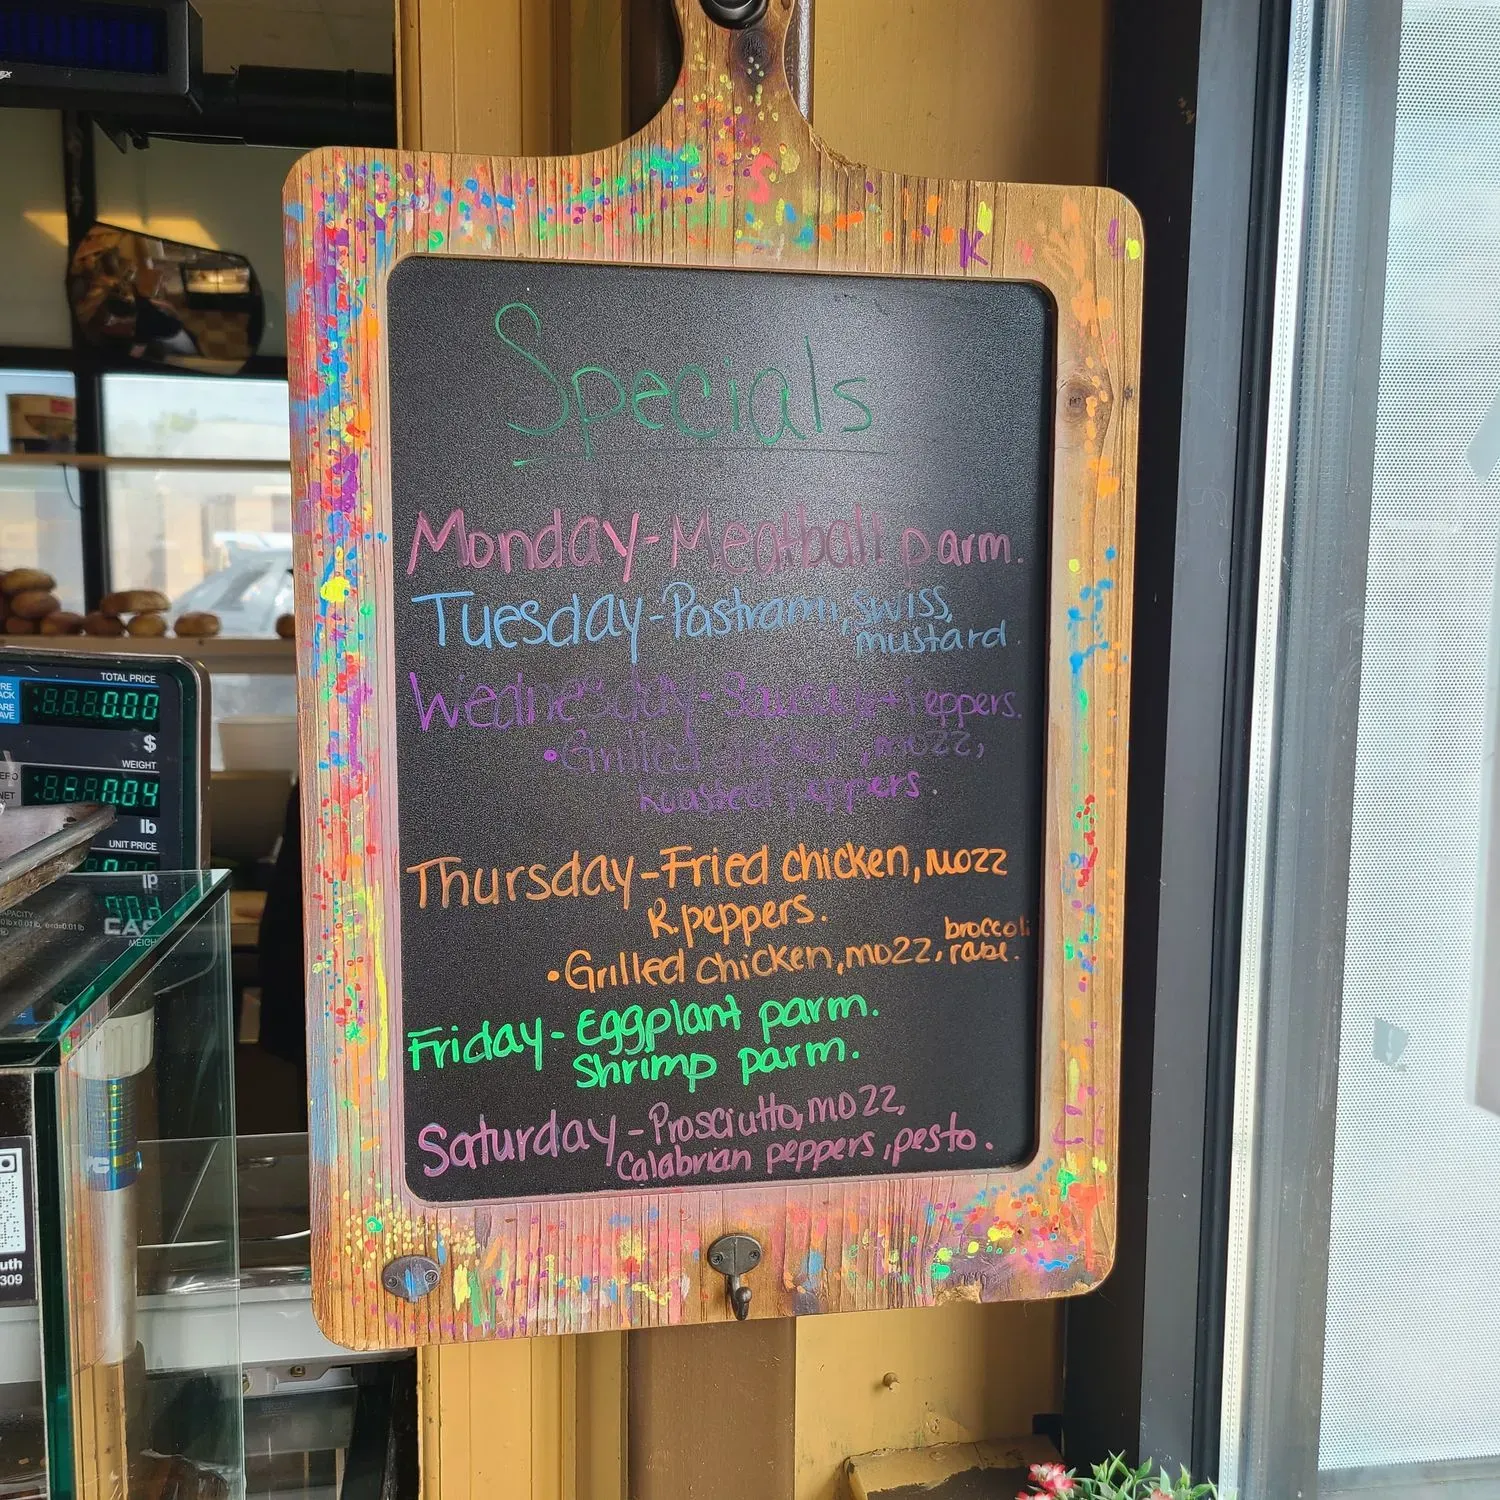 Specials
Monday-Meatball parm.
Tuesday-Pastrami, swiss,
mustard.
Wednesday Sausage + peppers.
• Grilled chicken, mozz,
Roasted peppers.
Thursday-Fried chicken, mozz
R.peppers.
• Grilled chicken, mozz, broccoli
rabe.
Friday-Eggplant parm.
Shrimp parm.
Saturday-Prosciutto, mozz,
Calabrian peppers, pesto.
K
TOTAL PRICE
0.00
$
WEIGHT
NET
-0.04
lb
UNIT PRICE
CAS
309